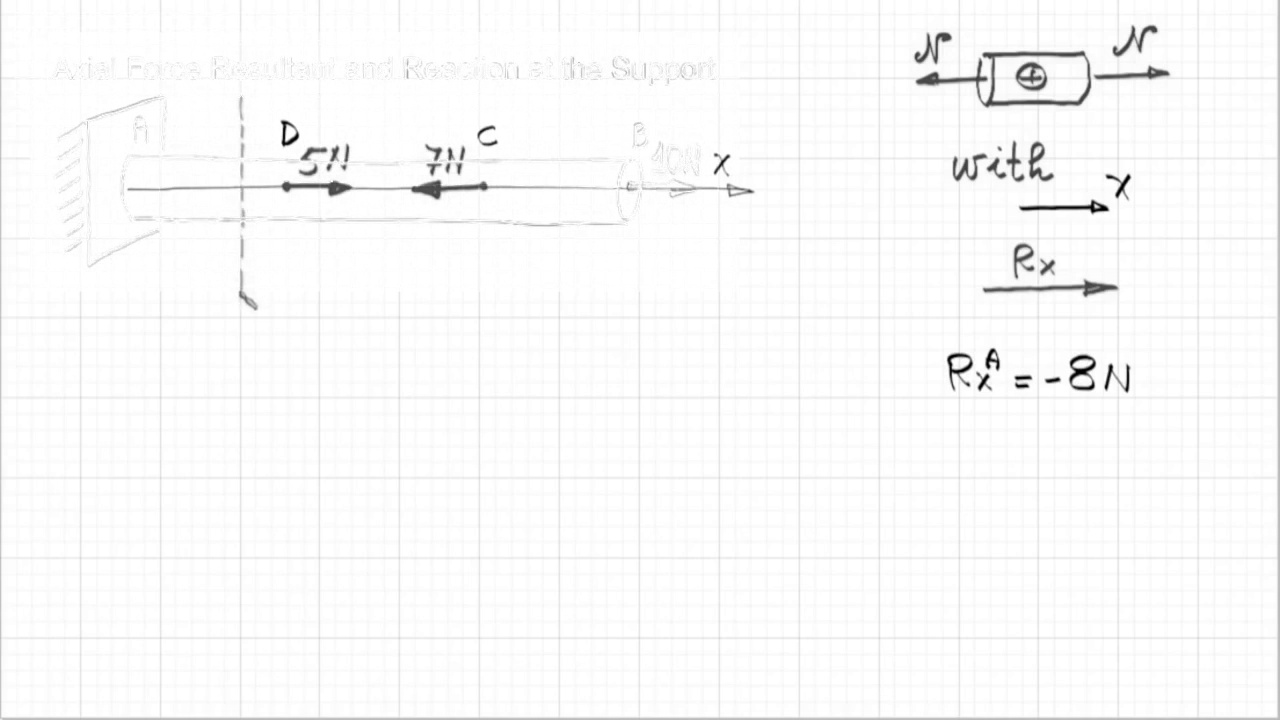 Axial Force Resultant and Reaction at the Support
N N
A D 5N 7N C B 10N X
with
X
Rx
Rx^A = -8N